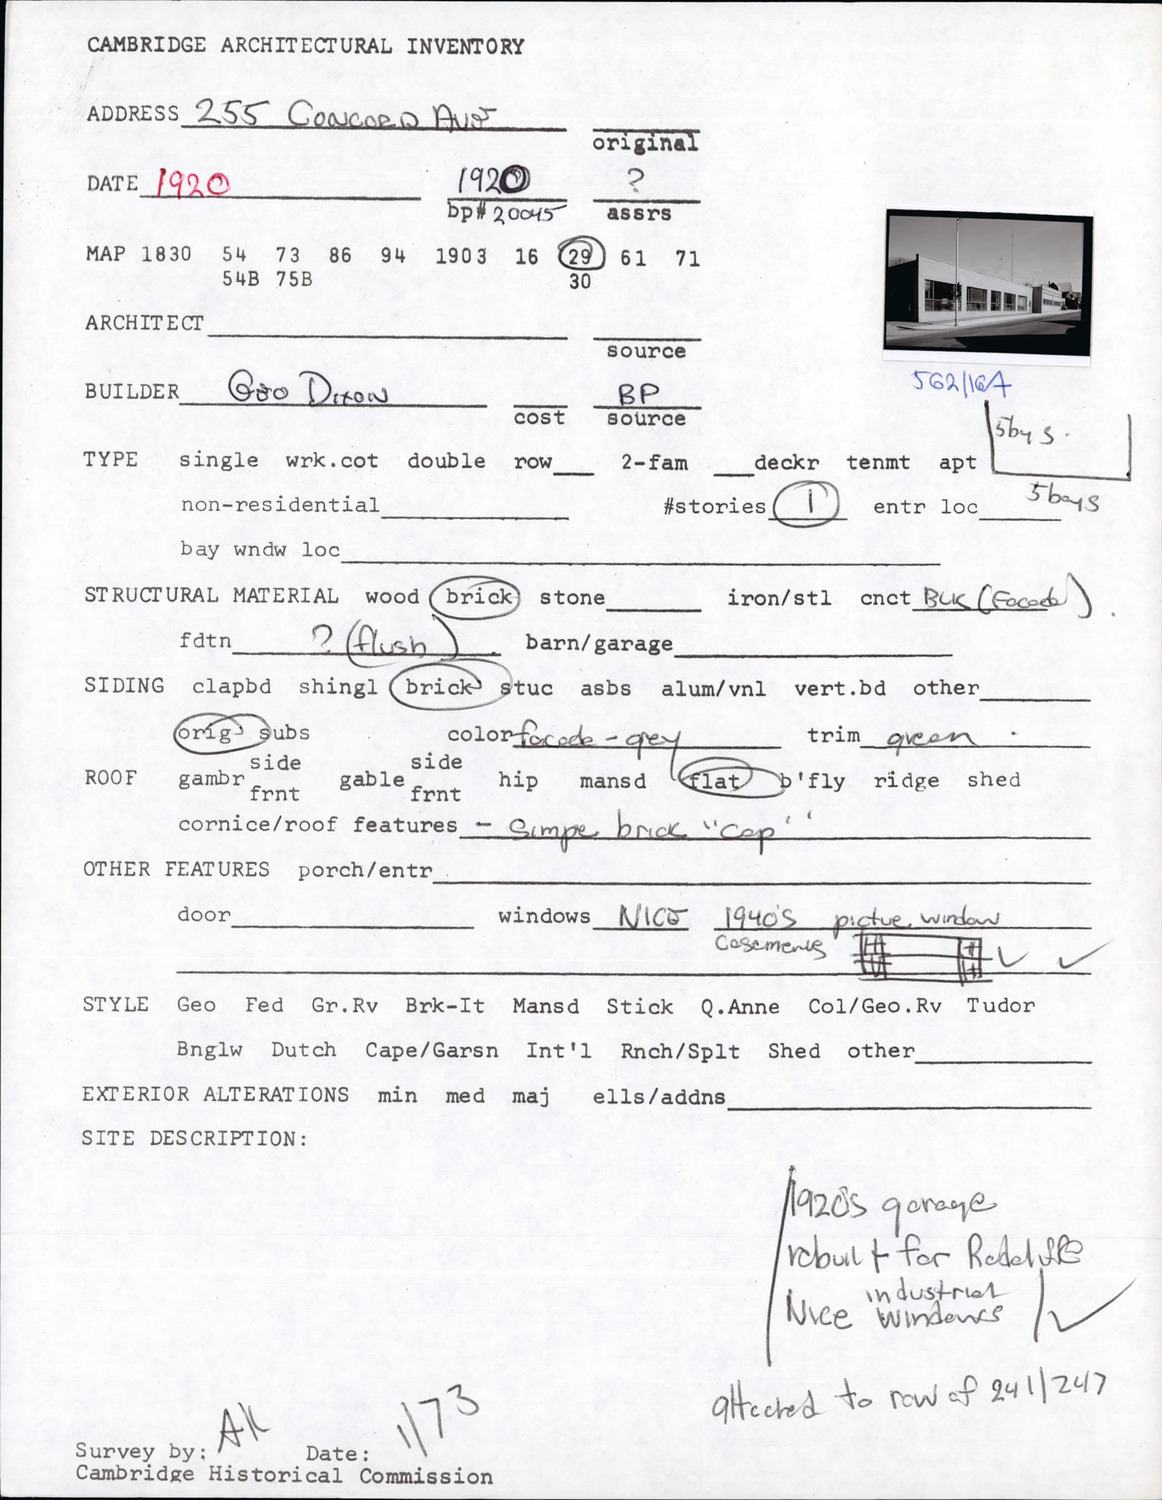 CAMBRIDGE ARCHITECTURAL INVENTORY
ADDRESS 255 Concord Ave
original
DATE 1920 1920 ?
bp# 20045 assrs
MAP 1830 54 73 86 94 1903 16 29 61 71
54B 75B 30
ARCHITECT
source
562/16A
BUILDER Geo Dixon BP
cost source
5bys.
TYPE single wrk.cot double row 2-fam deckr tenmt apt
5bays
non-residential #stories 1 entr loc
bay wndw loc
STRUCTURAL MATERIAL wood brick stone iron/stl cnct BLK (Facade)
fdtn ? (flush) barn/garage
SIDING clapbd shingl brick stuc asbs alum/vnl vert.bd other
orig subs color facade - grey trim green
side side
ROOF gambr gable hip mansd flat b'fly ridge shed
frnt frnt
cornice/roof features - Simpe brick "cap"
OTHER FEATURES porch/entr
door windows NICE 1940's pictue window
Casements
STYLE Geo Fed Gr.Rv Brk-It Mansd Stick Q.Anne Col/Geo.Rv Tudor
Bnglw Dutch Cape/Garsn Int'l Rnch/Splt Shed other
EXTERIOR ALTERATIONS min med maj ells/addns
SITE DESCRIPTION:
1920's garage
rebuilt for Radcliffe
industrial
Nice windows
attached to row of 241/247
Survey by: AK Date: 1/73
Cambridge Historical Commission